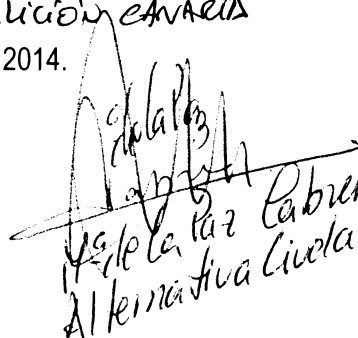 LICIÓN CANARIA
2014.
de la Paz
Mª de La Paz Cabre
Alternativa Ciuda